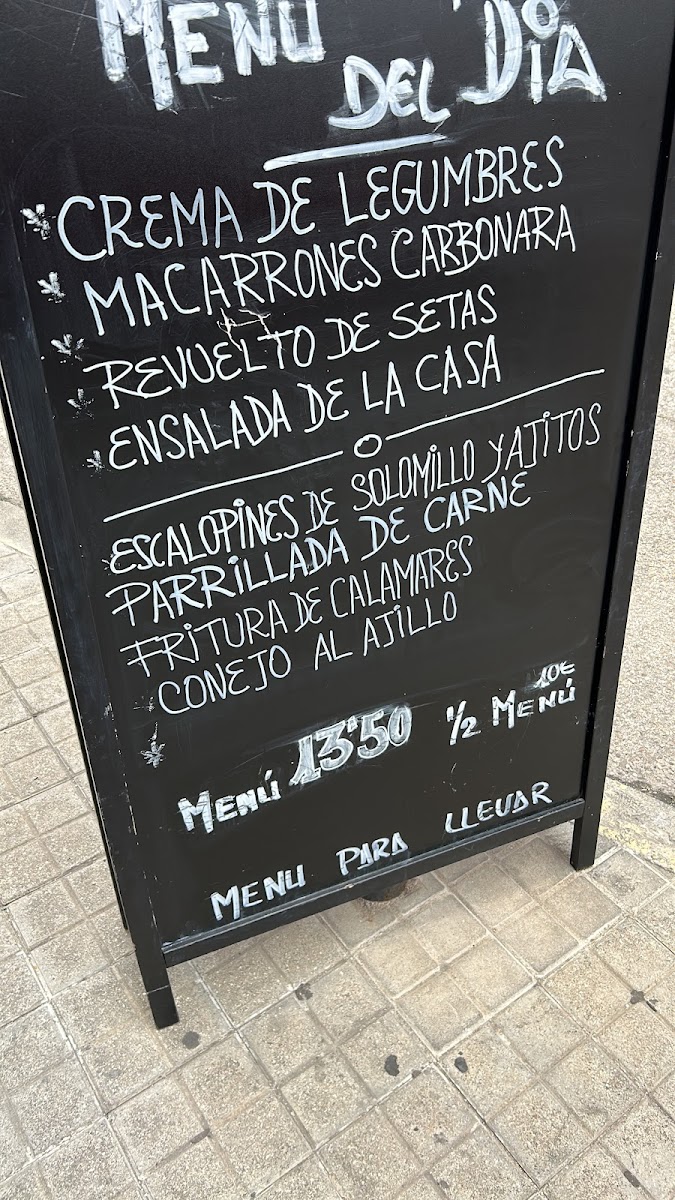 MENÚ
DEL DIA
CREMA DE LEGUMBRES
MACARRONES CARBONARA
REVUELTO DE SETAS
ENSALADA DE LA CASA
ESCALOPINES DE SOLOMILLO Y AJITOS
PARRILLADA DE CARNE
FRITURA DE CALAMARES
CONEJO AL AJILLO
MENÚ 13'50 1/2 MENÚ 10€
MENU PARA LLEVAR